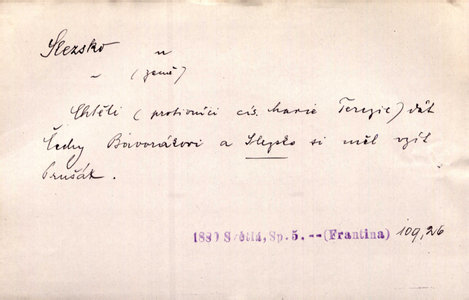 Slezsko n
~ (země)
Chtěli (protivníci cís. Marie Terezie) dát
Čechy Bavorákovi a Slezsko si měl vzít
Prušák.
1880 Světlá, Sp. 5. -- (Frantina) 109,26